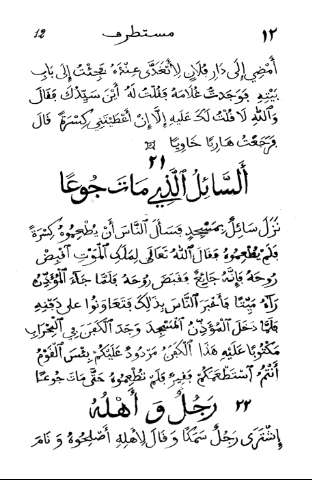 ١٢ مستطرف 12
أَمْضِي إِلَى دَارِ فُلَانٍ لِأَتَغَدَّى عِنْدَهُ فَجِئْتُ إِلَى بَابِ
بَيْتِهِ فَوَجَدْتُ غُلَامَهُ فَقُلْتُ لَهُ أَيْنَ سَيِّدُكَ فَقَالَ
وَاللّٰهِ لَا قُلْتُ لَكَ عَلَيْهِ إِلَّا إِنْ أَعْطَيْتَنِي كِسْرَةً قَالَ
فَرَجَعْتُ هَارِبًا خَاوِيًا
٢١
أَلسَّائِلُ الَّذِي مَاتَ جُوعًا
نَزَلَ سَائِلٌ بِمَسْجِدٍ فَسَأَلَ النَّاسَ أَنْ يُطْعِمُوهُ كِسْرَةً
فَلَمْ يُطْعِمُوهُ فَقَالَ اللّٰهُ تَعَالَى لِمَلَكِ الْمَوْتِ اقْبِضْ
رُوحَهُ فَإِنَّهُ جَائِعٌ فَقَبَضَ رُوحَهُ فَلَمَّا جَاءَ الْمُؤَذِّنُ
رَآهُ مَيِّتًا فَأَخْبَرَ النَّاسَ بِذَلِكَ فَتَعَاوَنُوا عَلَى دَفْنِهِ
فَلَمَّا دَخَلَ الْمُؤَذِّنُ الْمَسْجِدَ وَجَدَ الْكَفَنَ فِي الْمِحْرَابِ
مَكْتُوبًا عَلَيْهِ هَذَا الْكَفَنُ مَرْدُودٌ عَلَيْكُمْ بِئْسَ الْقَوْمُ
أَنْتُمُ اسْتَطْعَمَكُمْ فَقِيرٌ فَلَمْ تُطْعِمُوهُ حَتَّى مَاتَ جُوعًا
٢٢ رَجُلٌ وَ أَهْلُهُ
إِشْتَرَى رَجُلٌ سَمَكًا وَ قَالَ لِأَهْلِهِ أَصْلِحُوهُ وَ نَامَ